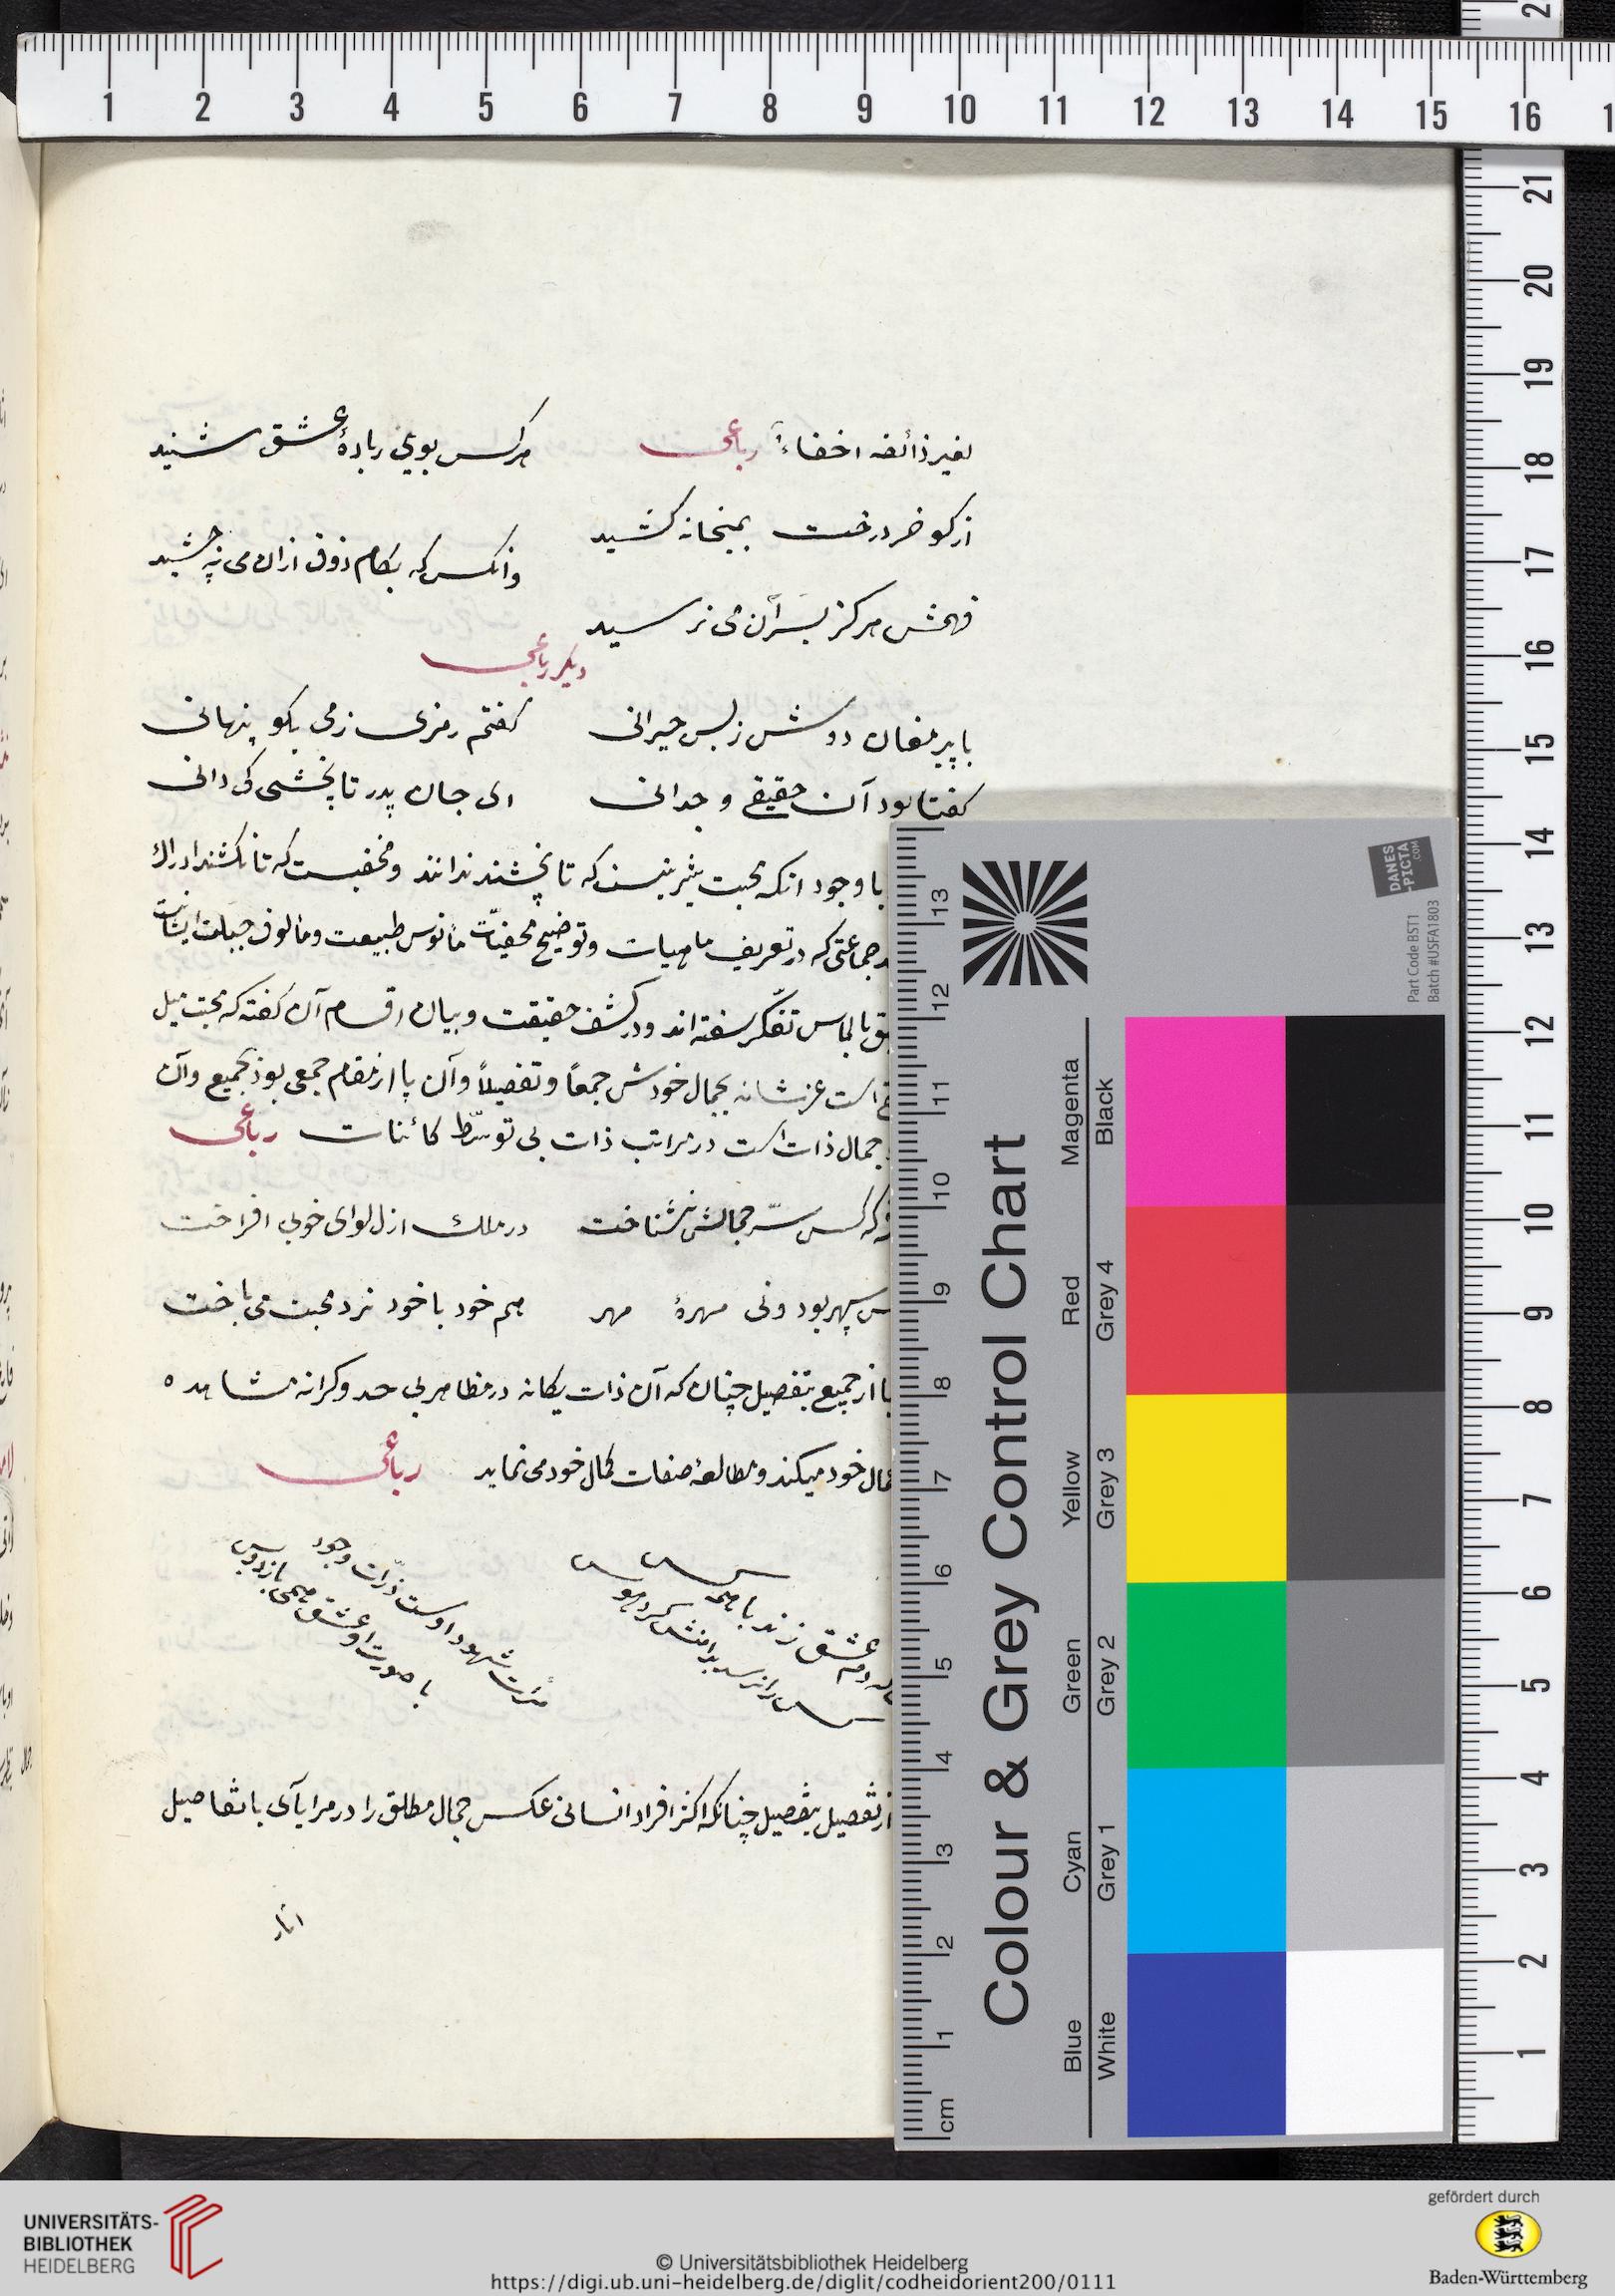 1 2 3 4 5 6 7 8 9 10 11 12 13 14 15 16
لغیر ذائقه اخفاءً رباعی هرکس بویی ز بادهٔ عشق شنید
از کو خرد رخت بمیخانه کشید وانکس که بکام ذوق ازان می نچشید
فهمش هرگز بسرّ آن می نرسید
دیگر رباعی
با پیر مغان دوش زبس حیرانی گفتم رمزی زمی بگو پنهانی
گفتا بود آن حقیقی وجدانی ای جان پدر تا نچشی کی دانی
با وجود انکه محبت شیرینیست که تا نچشند ندانند و مخفیست که تا نکشند ادراک
جماعتی که در تعریف ماهیات و توضیح مخفیّات مانوس طبیعت و مالوف جبلت ایشانست
بالماس تفکّر سفته اند و در کشف حقیقت و بیان اقسام آن گفته که محبت میل
است عز شانه بجمال خودش جمعاً و تفصیلاً و آن یا از مقام جمعی بود بجمیع و آن
جمال ذات است در مراتب ذات بی توسّط کائنات رباعی
که کس سرّ جمالش نشناخت در ملک ازل لوای خوبی افراخت
سپهر بود ونی مهرهٔ مهر هم خود با خود نرد محبت می باخت
یا از جمیع بتفصیل چنان که آن ذات یگانه در مظاهر بی حد و کرانه مشاهده
خود میکند و مطالعهٔ صفات کمال خود می نماید رباعی
دم عشق زند با همه کس
کس را نرسد بدامنش کرد هوس
مرآت شهود اوست ذرّات وجود
با صورت او عشق همی بازد و بس
از تفصیل بتفصیل چنانکه اکثر افراد انسانی عکس جمال مطلق را در مرایای با تفاصیل
اثار
2 21 20 19 18 17 16 15 14 13 12 11 10 9 8 7 6 5 4 3 2 1
13 12 11 10 9 8 7 6 5 4 3 2 1 cm
Colour & Grey Control Chart
Blue Cyan Green Yellow Red Magenta
White Grey 1 Grey 2 Grey 3 Grey 4 Black
DANES
-PICTA
.COM
Part Code BST1
Batch #USFA1803
UNIVERSITÄTS-
BIBLIOTHEK
HEIDELBERG
© Universitätsbibliothek Heidelberg
https://digi.ub.uni-heidelberg.de/diglit/codheidorient200/0111
gefördert durch
Baden-Württemberg